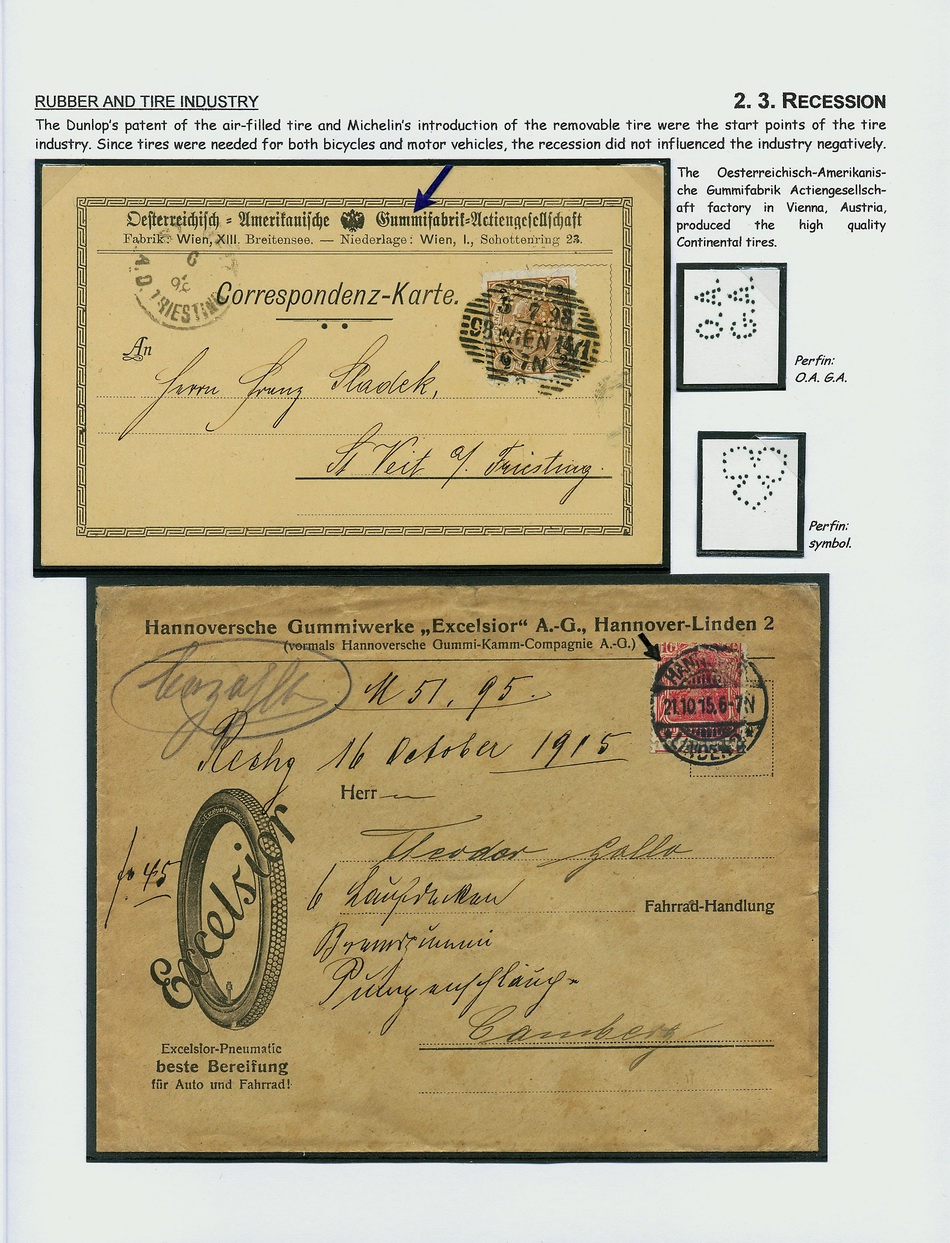 RUBBER AND TIRE INDUSTRY
2. 3. RECESSION
The Dunlop's patent of the air-filled tire and Michelin's introduction of the removable tire were the start points of the tire
industry. Since tires were needed for both bicycles and motor vehicles, the recession did not influenced the industry negatively.
The Oesterreichisch-Amerikanis-
che Gummifabrik Actiengesellsch-
aft factory in Vienna, Austria,
produced the high quality
Continental tires.
Oesterreichisch - Amerikanische Gummifabrik-Actiengesellschaft
Fabrik: Wien, XIII. Breitensee. — Niederlage: Wien, I., Schottenring 23.
Correspondenz-Karte.
TRIESTING
WIEN
An
Herrn Franz Sladek,
St Veit a/ Triesting.
O.A.
G.A.
Perfin:
O.A. G.A.
Perfin:
symbol.
Hannoversche Gummiwerke „Excelsior“ A.-G., Hannover-Linden 2
(vormals Hannoversche Gummi-Kamm-Compagnie A.-G.)
M 51,95.
21.10.15.6-7N
Rechg 16 October 1915
Herr
Theodor Gallo
6 Laufdecken
Fahrrad-Handlung
Camberg
Excelsior
Excelsior-Pneumatic
beste Bereifung
für Auto und Fahrrad!